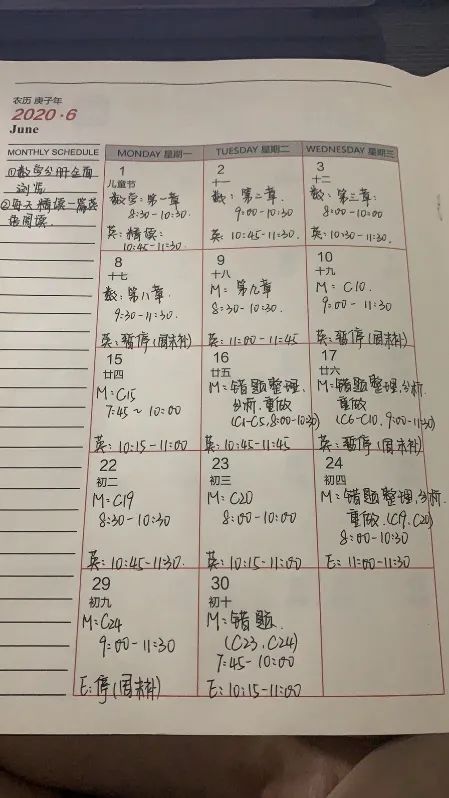 农历 庚子年
2020·6
June
MONTHLY SCHEDULE
①数学分册全面
浏览
②每天精读一篇英
语阅读.
MONDAY 星期一
TUESDAY 星期二
WEDNESDAY 星期三
1
儿童节
数学:第一章
8:30-10:30.
英:精读:
10:45-11:30
2
十一
数:第二章.
9:00-10:30
英:10:45-11:30
3
十二
数:第三章:
8:00-10:00
英:10:30-11:30.
8
十七
数:第八章.
9:30-11:30.
英:暂停(周末补)
9
十八
M:第九章
8:30-10:30.
英:11:00-11:45
10
十九
M:C10.
9:00-11:30
英:暂停(周末补)
15
廿四
M:C15
7:45~10:00
英:10:15-11:00
16
廿五
M:错题整理,
分析,重做
(C1-C5,8:00-10:30)
英:10:45-11:45
17
廿六
M:错题整理,分析.
重做
(C6-C10,9:00-11:30)
英:暂停(周末补)
22
初二
M:C19
8:30-10:30
英:10:45-11:30.
23
初三
M:C20
8:00-10:00
英:10:15-11:00
24
初四
M:错题整理,分析.
重做.(C19,C20)
8:00-10:30
E:11:00-11:30
29
初九
M:C24
9:00-11:30
E:停(周末补)
30
初十
M:错题.
(C23,C24)
7:45-10:00
E:10:15-11:00